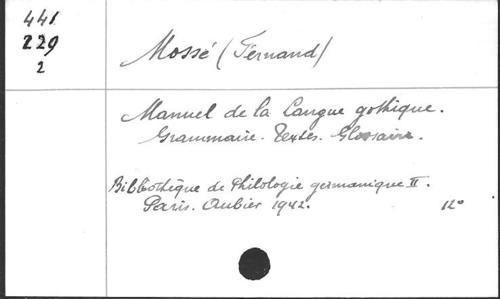 441
229
2
Mossé (Fernand)
Manuel de la Langue gothique.
Grammaire. Textes. Glossaire.
Bibliothèque de Philologie germanique II.
Paris. Aubier 1942. 12°